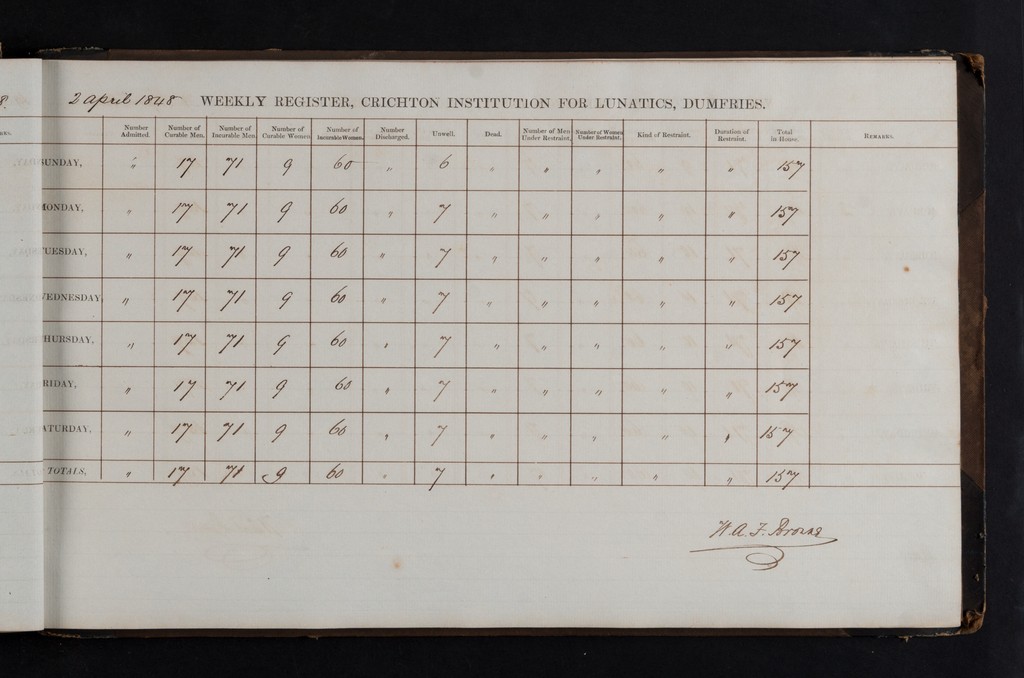 8. 2 April 1848 WEEKLY REGISTER, CRICHTON INSTITUTION FOR LUNATICS, DUMFRIES.
Number Admitted. Number of Curable Men. Number of Incurable Men. Number of Curable Women Number of Incurable Women. Number Discharged. Unwell. Dead. Number of Men Under Restraint. Number of Women Under Restraint. Kind of Restraint. Duration of Restraint. Total in House. REMARKS.
SUNDAY, " 17 71 9 60 " 6 " " " " " 157
MONDAY, " 17 71 9 60 " 7 " " " " " 157
TUESDAY, " 17 71 9 60 " 7 " " " " " 157
WEDNESDAY, " 17 71 9 60 " 7 " " " " " 157
THURSDAY, " 17 71 9 60 " 7 " " " " " 157
FRIDAY, " 17 71 9 60 " 7 " " " " " 157
SATURDAY, " 17 71 9 60 " 7 " " " " " 157
TOTALS, " 17 71 9 60 " 7 " " " " " 157
W. A. F. Browne